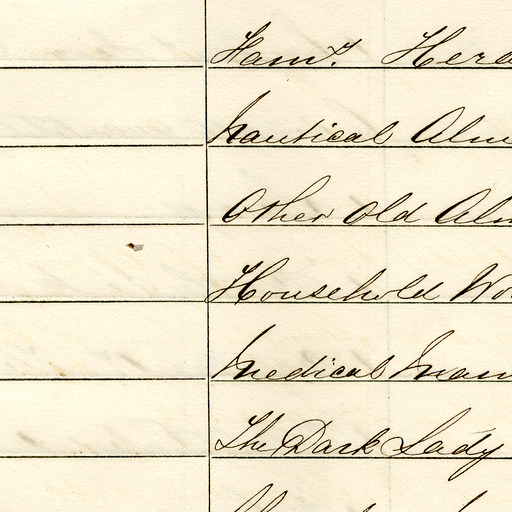 Hera
Nautical Alm
Other Old Alm
Household Wo
Medical Man
The Dark Lady